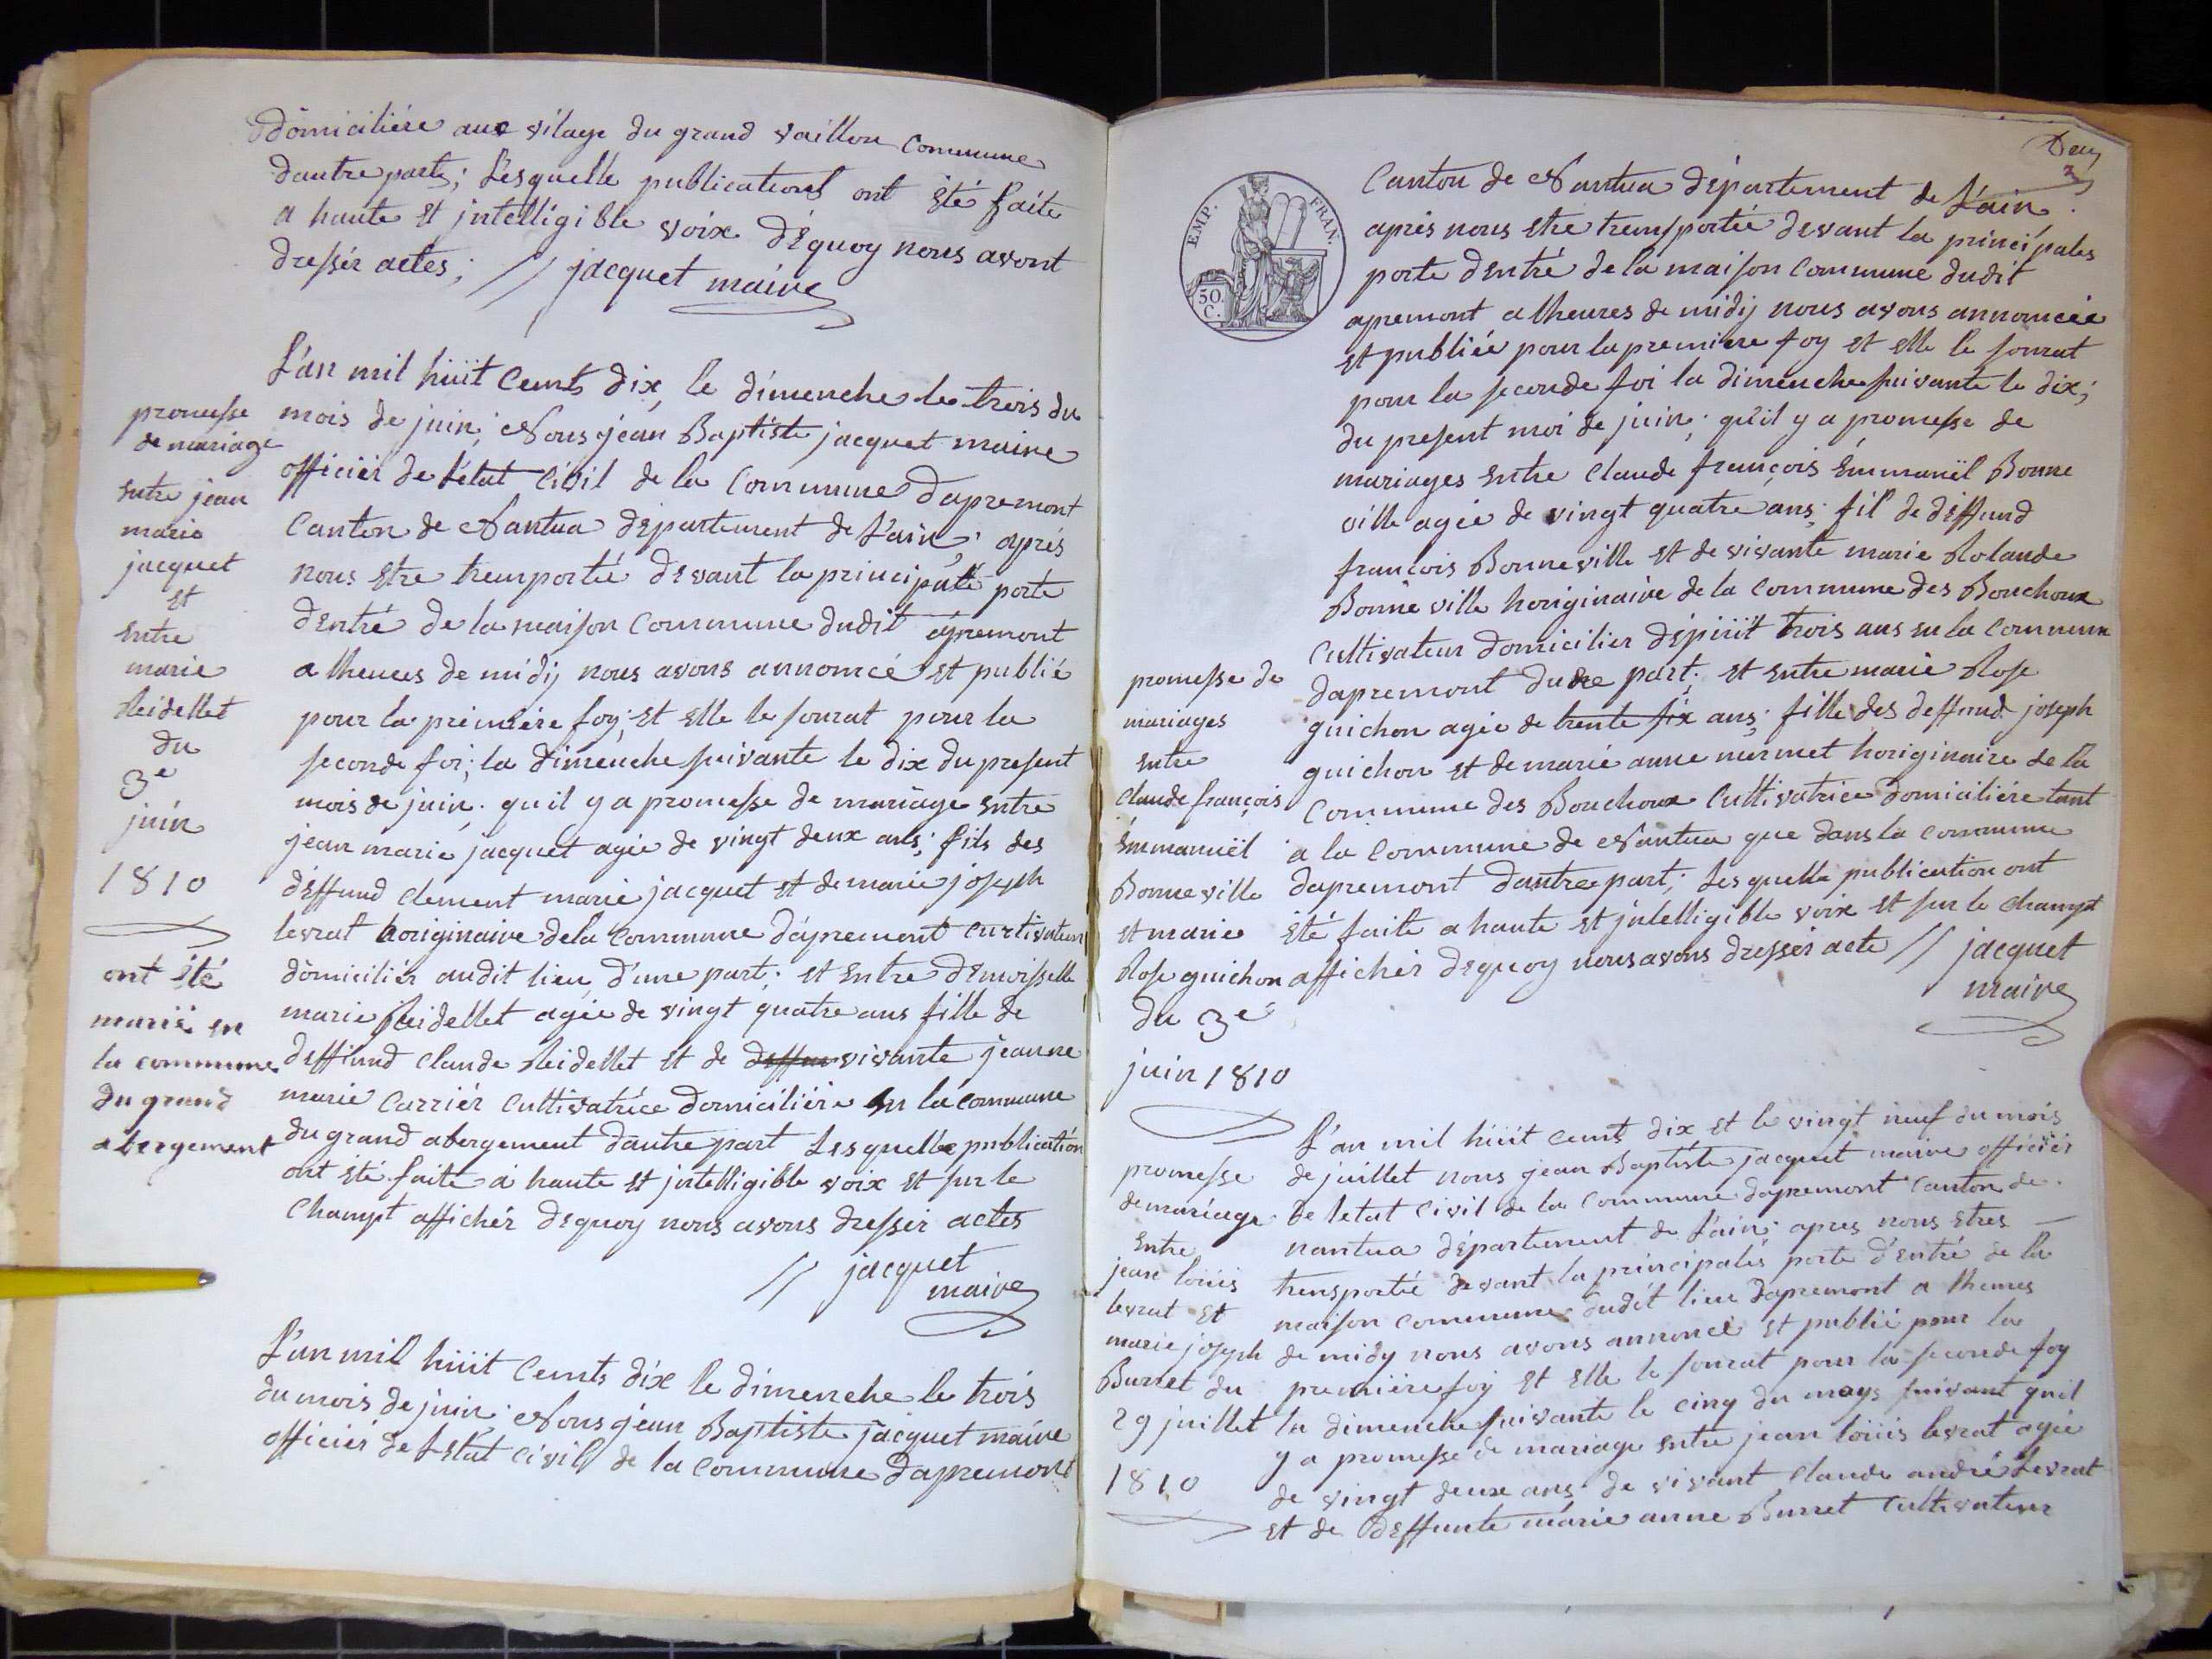 domiciliére aux vilage du grand vaillon commune
dautre parts; Lesquelle publications ont été faite
a haute et jntelligible voix déquoy nous avont
dressér actes; // jacquet maire
L'an mil huit Cents dix, le dimenche le trois du
mois de juin; Nous jean Baptiste jacquet maire
officiér de l'état Civil de la Commune dapremont
Canton de Nantua département de L'ain; aprés
nous etre tremportée devant la principalle porte
dentré de la maison Commune dudit apremont
a lheures de midij nous avons annoncé et publié
pour la premiére foy; et elle le sourat pour la
seconde foi; la dimenche suivante le dix du present
mois de juin; quil y a promesse de mariage entre
jean marie jacquet agée de vingt deux ans; fils des
deffund clement marie jacquet et de marie joseph
levrat horiginaire dela Commune dápremont curtivateur
domiciliér audit lieu d'une part; et entre demoisselle
marie Reidellet agée de vingt quatre ans fille de
deffund Claude Reidellet et de deffun vivante jeanne
marie Carriér Cultivatrice domiciliére en la commune
du grand abergement dautre part Lesquelle publication
ont été faite a haute et jntelligible voix et sur le
Champt affichér dequoy nous avons dressér actes
// jacquet
maire
promesse
de mariage
entre jean
marie
jacquet
et
entre
marie
Reidellet
du
3e
juin
1810
ont été
marié en
la commune
du grand
abergement
L'an mil huit Cents dix le dimenche le trois
du mois de juin; Nous jean Baptiste jacquet maire
officiér de Letat civil de la Commune dapremont
EMP. FRAN.
50.
C.
Canton de Nantua département de L'ain;
aprés nous etre tremsportée devant la principales
porte dentré de la maison Commune dudit
apremont a lheures de midij nous avons annoncée
et publiée pour la premiere foy et elle le sourat
pour la seconde foi la dimenche suivante le dix;
du present moi de juin; qu'il y a promesse de
mariages entre Claude françois Emmanuël Bonne
ville agée de vingt quatre ans; fil de deffund
francois Bonneville et de vivante marie Rolande
Bonne ville horiginaire de la Commune des Bouchoux
Cultivateur domicilier dépuit trois ans en la Commune
dapremont dune part; et entre marie Rose
guichon agée de trente six ans; fille des deffund joseph
guichon et de marie anne mermet horiginaire de la
Commune des Bouchoux Cultivatrice domiciliére tant
a la Commune de Nantua que dans la commune
dapremont dautre part; Lesquelle publication ont
été faite a haute et jntelligible voix et sur le Champt
affichér dequoy nous avons dressér acte // jacquet
maire
promesse de
mariages
entre
Claude françois
Emmanuël
Bonneville
et marie
Rose guichon
du 3e
juin 1810
L'an mil huit cents dix et le vingt neuf du mois
de juillet nous jean Baptiste jacquet maire officiér
de letat civil de la Commune dapremont Canton de
nantua département de L'ain; apres nous etres
trensportée devant la principales porte d'entré de la
maison commune dudit lieu dapremont a lheures
de midy nous avons annoncé et publié pour la
premiére foy et elle le sourat pour la seconde foy
la dimenche suivante le cinq du moys suivant quil
y a promesse de mariage entre jean loüis levrat agée
de vingt deux ans de vivant Claude andré Levrat
et de deffunte marie anne Burret Cultivateur
promesse
de mariage
entre
jean loüis
levrat et
marie joseph
Burret du
29 juillet
1810